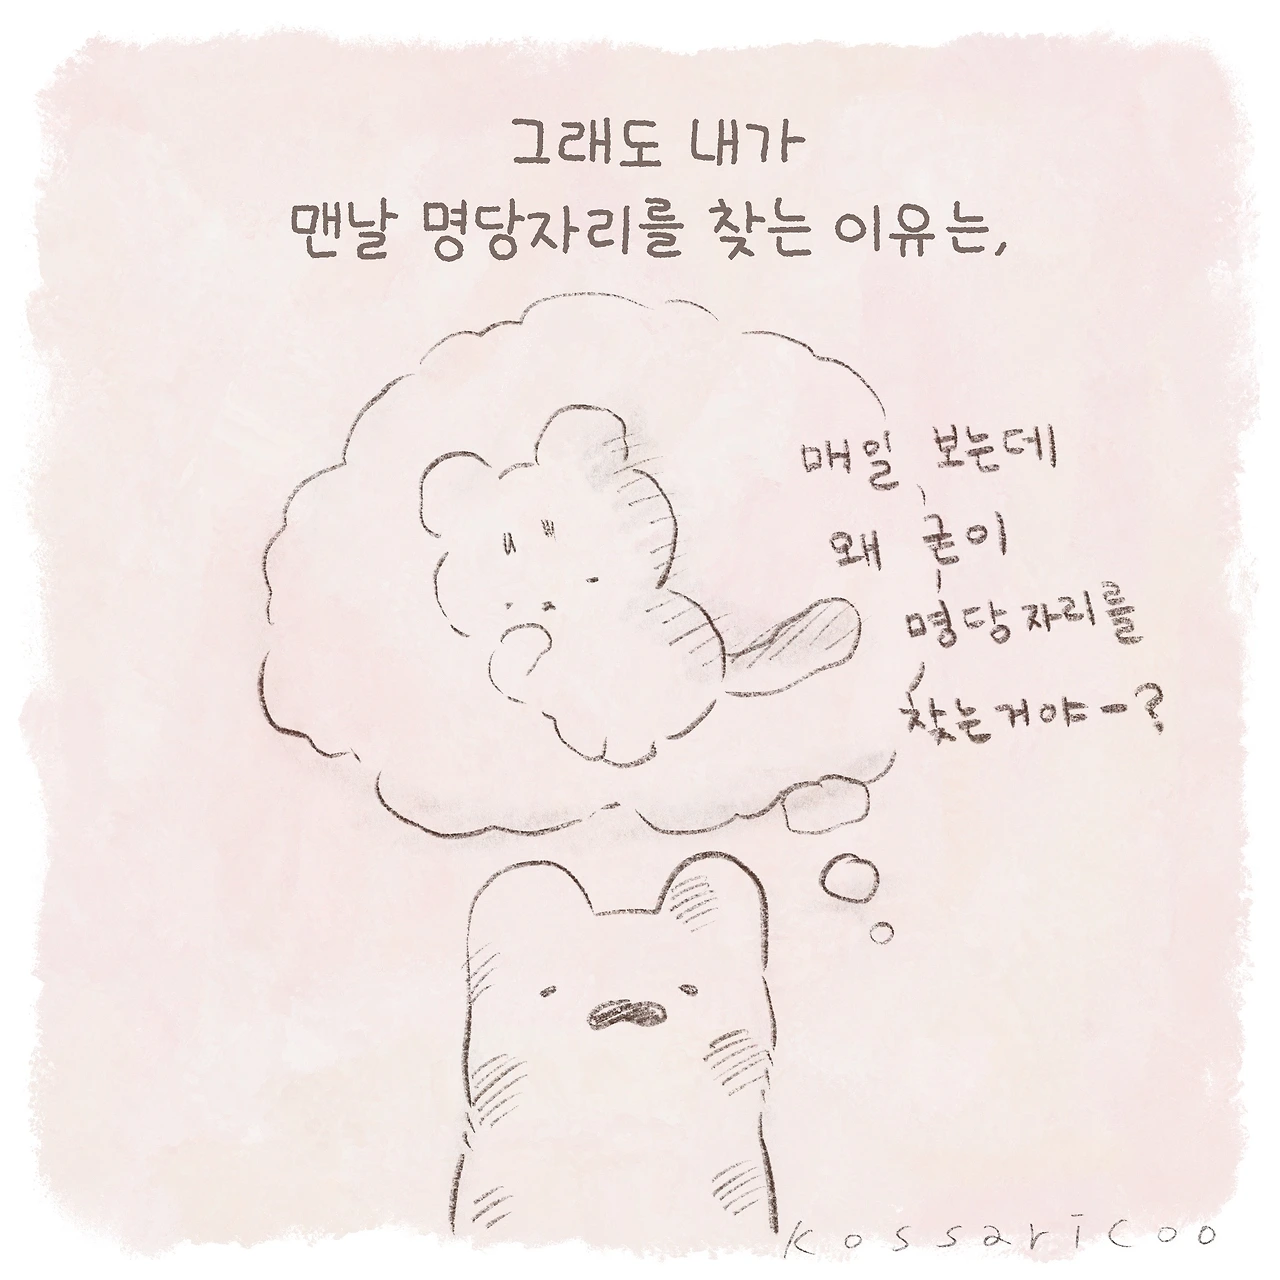 그래도 내가
맨날 명당자리를 찾는 이유는,
매일 보는데
왜 굳이
명당자리를
찾는거야-?
kossaricoo